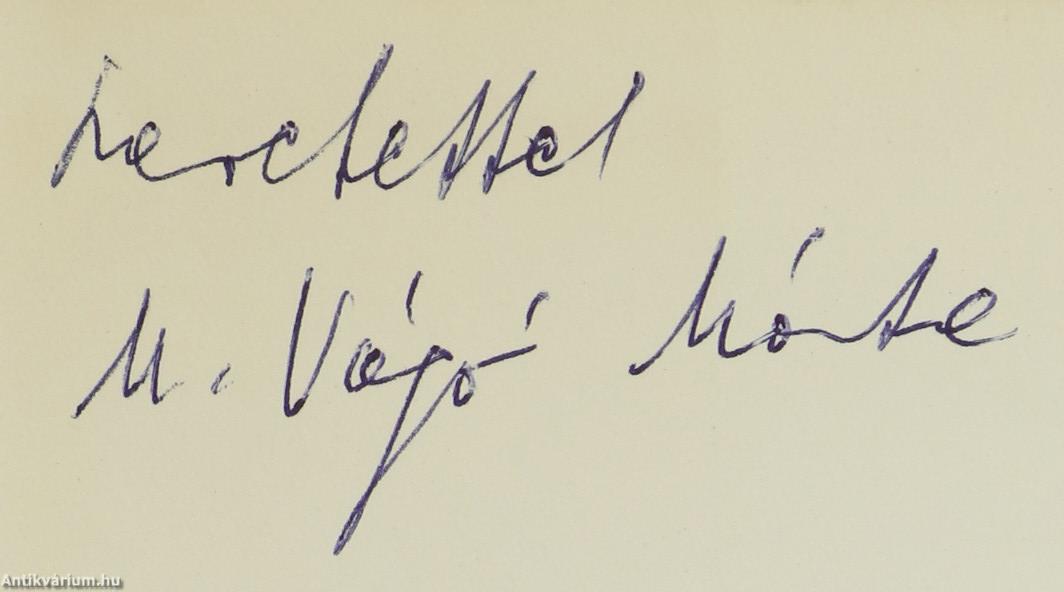 szeretettel
M. Vágó Márta
Antikvárium.hu